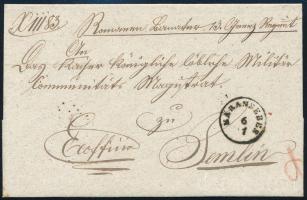 N 1183 Romanen Banater 13. Grenz Regimt
An
Das Kaiser Königliche löbliche Militär
Communitäts Magistrat.
zu
Exoffitio Semlin
KARANSEBES
6
1